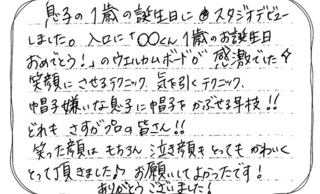 息子の1歳の誕生日に スタジオデビュー
しました。入口に「〇〇くん 1歳のお誕生日
おめでとう!」のウェルカムボードが 感激でした
笑顔に させるテクニック、気を引くテクニック、
帽子嫌いな息子に帽子を かぶせる早技!!
どれも さすがプロの皆さん!!
笑った顔は もちろん 泣き顔も とっても かわいく
とって頂きました♪ お願いしてよかったです!
ありがとうございました!